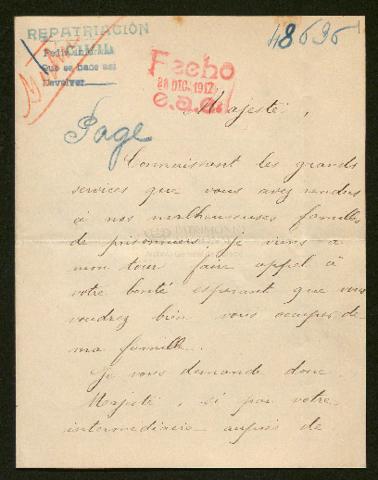 REPATRIACIÓN
Que se hace así
Devolver
48636
Fecho
28 DIC. 1917
e.a.a.
Majesté,
Page
Connaissant les grands
services que vous avez rendus
à nos malheureuses familles
de prisonniers, je viens à
mon tour faire appel à
votre bonté espérant que vous
voudrez bien vous occuper de
ma famille.
Je vous demande donc
Majesté, si par votre
intermédiaire auprès de
PATRIMONIO